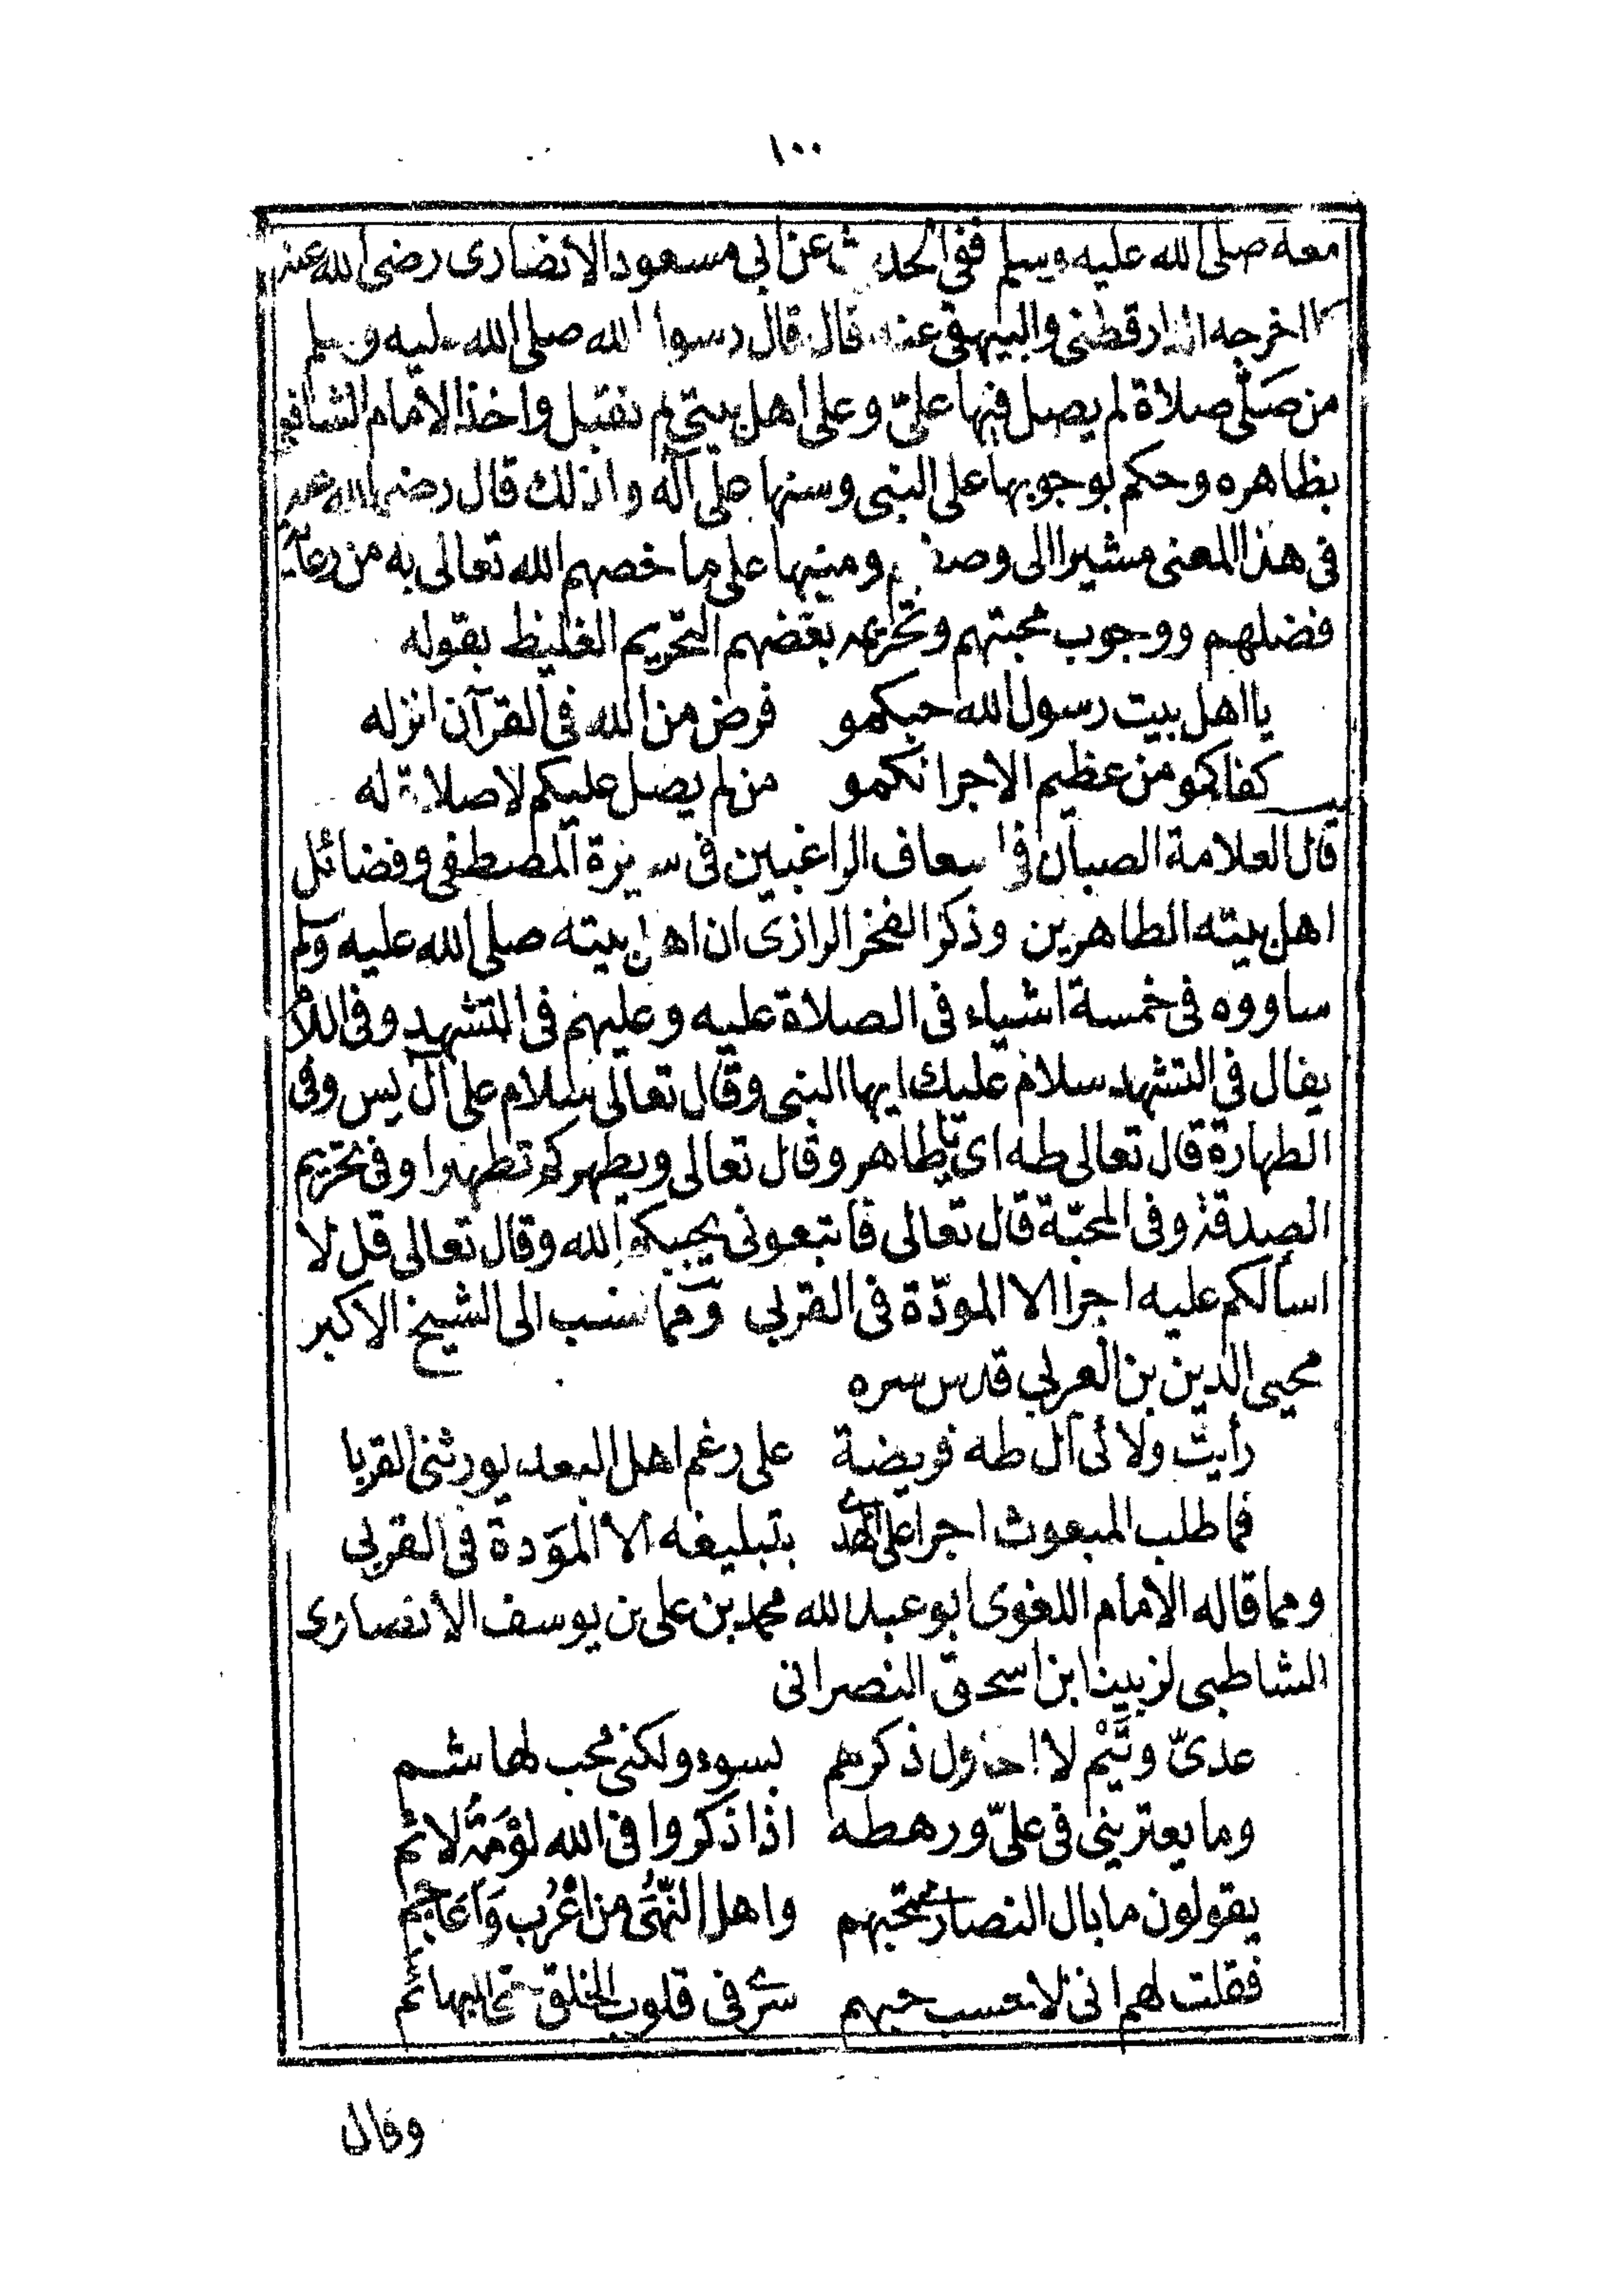 ١٠٠
معه صلى الله عليه وسلم ففى الحديث عن ابي مسعود الانصارى رضى الله عنه
كما اخرجه الدارقطنى والبيهقى عنه قال قال رسول الله صلى الله عليه وسلم
من صَلّى صلاة لم يصل فيها علىّ وعلى اهل بيتى لم تقبل واخذ الامام الشافعى
بظاهره وحكم بوجوبها على النبى وسنها على آله ولذلك قال رضى الله عنه
فى هذا المعنى مشيرا الى وصفهم ومنبها على ما خصهم الله تعالى به من رعاية
فضلهم ووجوب محبتهم وتحريم بغضهم التحريم الغليظ بقوله
يا اهل بيت رسول الله حبكمو فرض من الله فى القرآن انزله
كفاكمو من عظيم الاجر انكمو من لم يصل عليكم لا صلاة له
قال العلامة الصبان فى اسعاف الراغبين فى سيرة المصطفى وفضائل
اهل بيته الطاهرين وذكر الفخر الرازى ان اهل بيته صلى الله عليه وسلم
ساووه فى خمسة اشياء فى الصلاة عليه وعليهم فى التشهد وفى السلام
يقال فى التشهد سلام عليك ايها النبى وقال تعالى سلام على آل يس وفى
الطهارة قال تعالى طه اى يا طاهر وقال تعالى ويطهركم تطهيرا وفى تحريم
الصدقة وفى المحبّة قال تعالى فاتبعونى يحببكم الله وقال تعالى قل لا
اسألكم عليه اجرا الا المودّة فى القربى ومما نسب الى الشيخ الاكبر
محيى الدين بن العربى قدس سره
رأيت ولائى آل طه فريضة على رغم اهل البعد يورثنى القربا
فما طلب المبعوث اجرا على الهدى بتبليغه الا المَودة فى القربى
ومما قاله الامام اللغوى ابو عبد الله محمد بن على بن يوسف الانصارى
الشاطبى لزبينا ابن اسحق النصرانى
عدىّ وتَيْم لا احاول ذكرهم بسوء ولكنى محب لهاشم
وما يعترينى فى علىّ ورهطه اذا ذكروا فى الله لَوْمَةُ لائم
يقولون ما بال النصارى تحبهم واهل النّهَى من اعْرُب وَاَعَاجم
فقلت لهم انى لاحسب حبهم سرى فى قلوب الخلق حتى البهائم
وقال